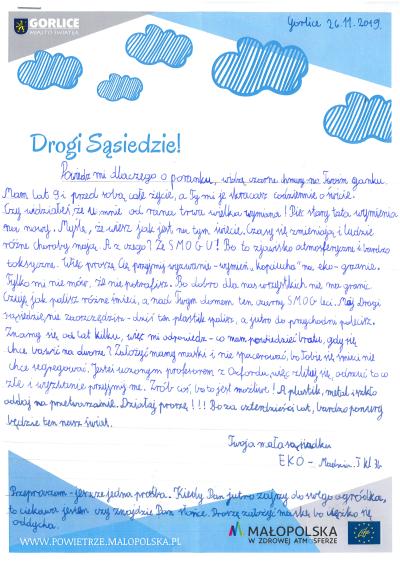 GORLICE
MIASTO ŚWIATŁA
Gorlice 26.11.2019.
Drogi Sąsiedzie!
Powiedz mi dlaczego o poranku, widzę czarne chmury na Twoim ganku.
Mam lat 9 i przed sobą całe życie, a Ty mi je skracasz codziennie o świcie.
Czy wiedziałeś że u mnie od rana trwa wielka wymiana! Piec stary tata wymienia
na nowy. Myślę, że wiesz jak jest na tym świecie. Czasy się zmieniają i ludzie
różne choroby mają. A z czego? Ze SMOGU! Bo to zjawisko atmosferyczne i bardzo
toksyczne. Więc proszę Cię przyjmij wyzwanie - wymień "kopciucha" na eko - grzanie.
Tylko mi nie mów, że nie potrafisz. Bo dobro dla nas wszystkich nie ma granic.
Czuję jak palisz różne śmieci, a nad Twoim domem ten czarny SMOG leci. Mój Drogi
sąsiedzie, nie zaoszczędzisz - dziś ten plastik spalisz, a jutro do przychodni polecisz.
Znamy się od lat kilku, więc mi odpowiedz - co mam powiedzieć bratu, gdy się
chce bawić na dworze? Założyć mamy maski i nie spacerować, bo Tobie się śmieci nie
chce segregować. Jesteś uczonym profesorem z Oxfordu, więc zlituj się, odrzuć to co
złe i wyzwanie przyjmij me. Zrób coś, bo to jest możliwe! A plastik, metal i szkło
oddaj na przetwarzanie. Działaj proszę!!! Bo za czterdzieści lat, bardzo ponury
będzie ten nasz świat.
Twoja mała sąsiadka
EKO - kl 3b
Przepraszam - jeszcze jedna prośba. Kiedy Pan jutro zajrzy do swego ogródka,
to ciekawa jestem czy znajdzie Pan słońce. Proszę założyć maskę bo ciężko się
oddycha.
WWW.POWIETRZE.MALOPOLSKA.PL
MAŁOPOLSKA
W ZDROWEJ ATMOSFERZE